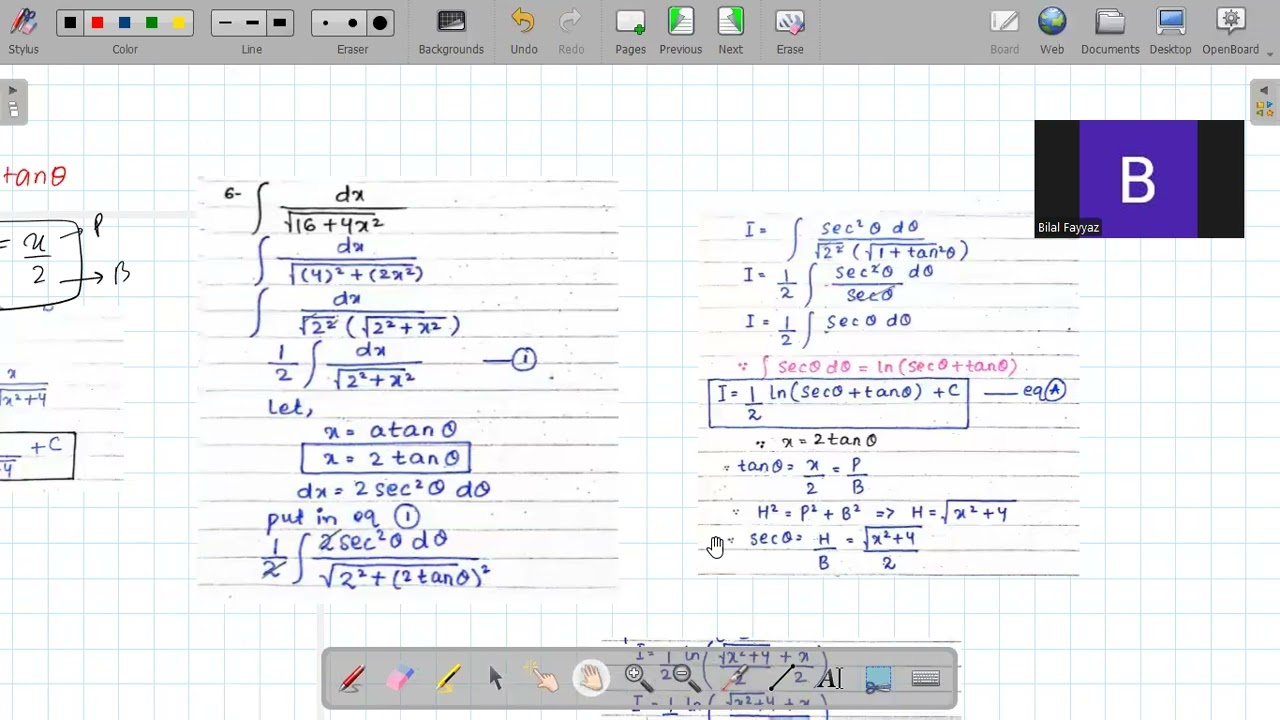 Stylus
Color
Line
Eraser
Backgrounds
Undo
Redo
Pages
Previous
Next
Erase
Board
Web
Documents
Desktop
OpenBoard
tanθ
= x/2
P
B
x/√x²+4
+C
6- ∫ dx/√16+4x²
∫ dx/√(4)²+(2x²)
∫ dx/√2² (√2²+x²)
1/2 ∫ dx/√2²+x² —①
Let,
x = a tan θ
x = 2 tan θ
dx = 2 sec²θ dθ
put in eq ①
1/2 ∫ 2sec²θ dθ/√2²+(2tanθ)²
I = ∫ sec²θ dθ/√2² (√1+tan²θ)
I = 1/2 ∫ sec²θ dθ/secθ
I = 1/2 ∫ secθ dθ
∵ ∫ secθ dθ = ln(secθ+tanθ)
I = 1/2 ln(secθ+tanθ) +C — eqⒶ
∵ x = 2tanθ
∵ tanθ = x/2 = P/B
∵ H² = P²+B² => H = √x²+4
∵ secθ = H/B = √x²+4/2
I = 1/2 ln(√x²+4/2 + x/2)
B
Bilal Fayyaz